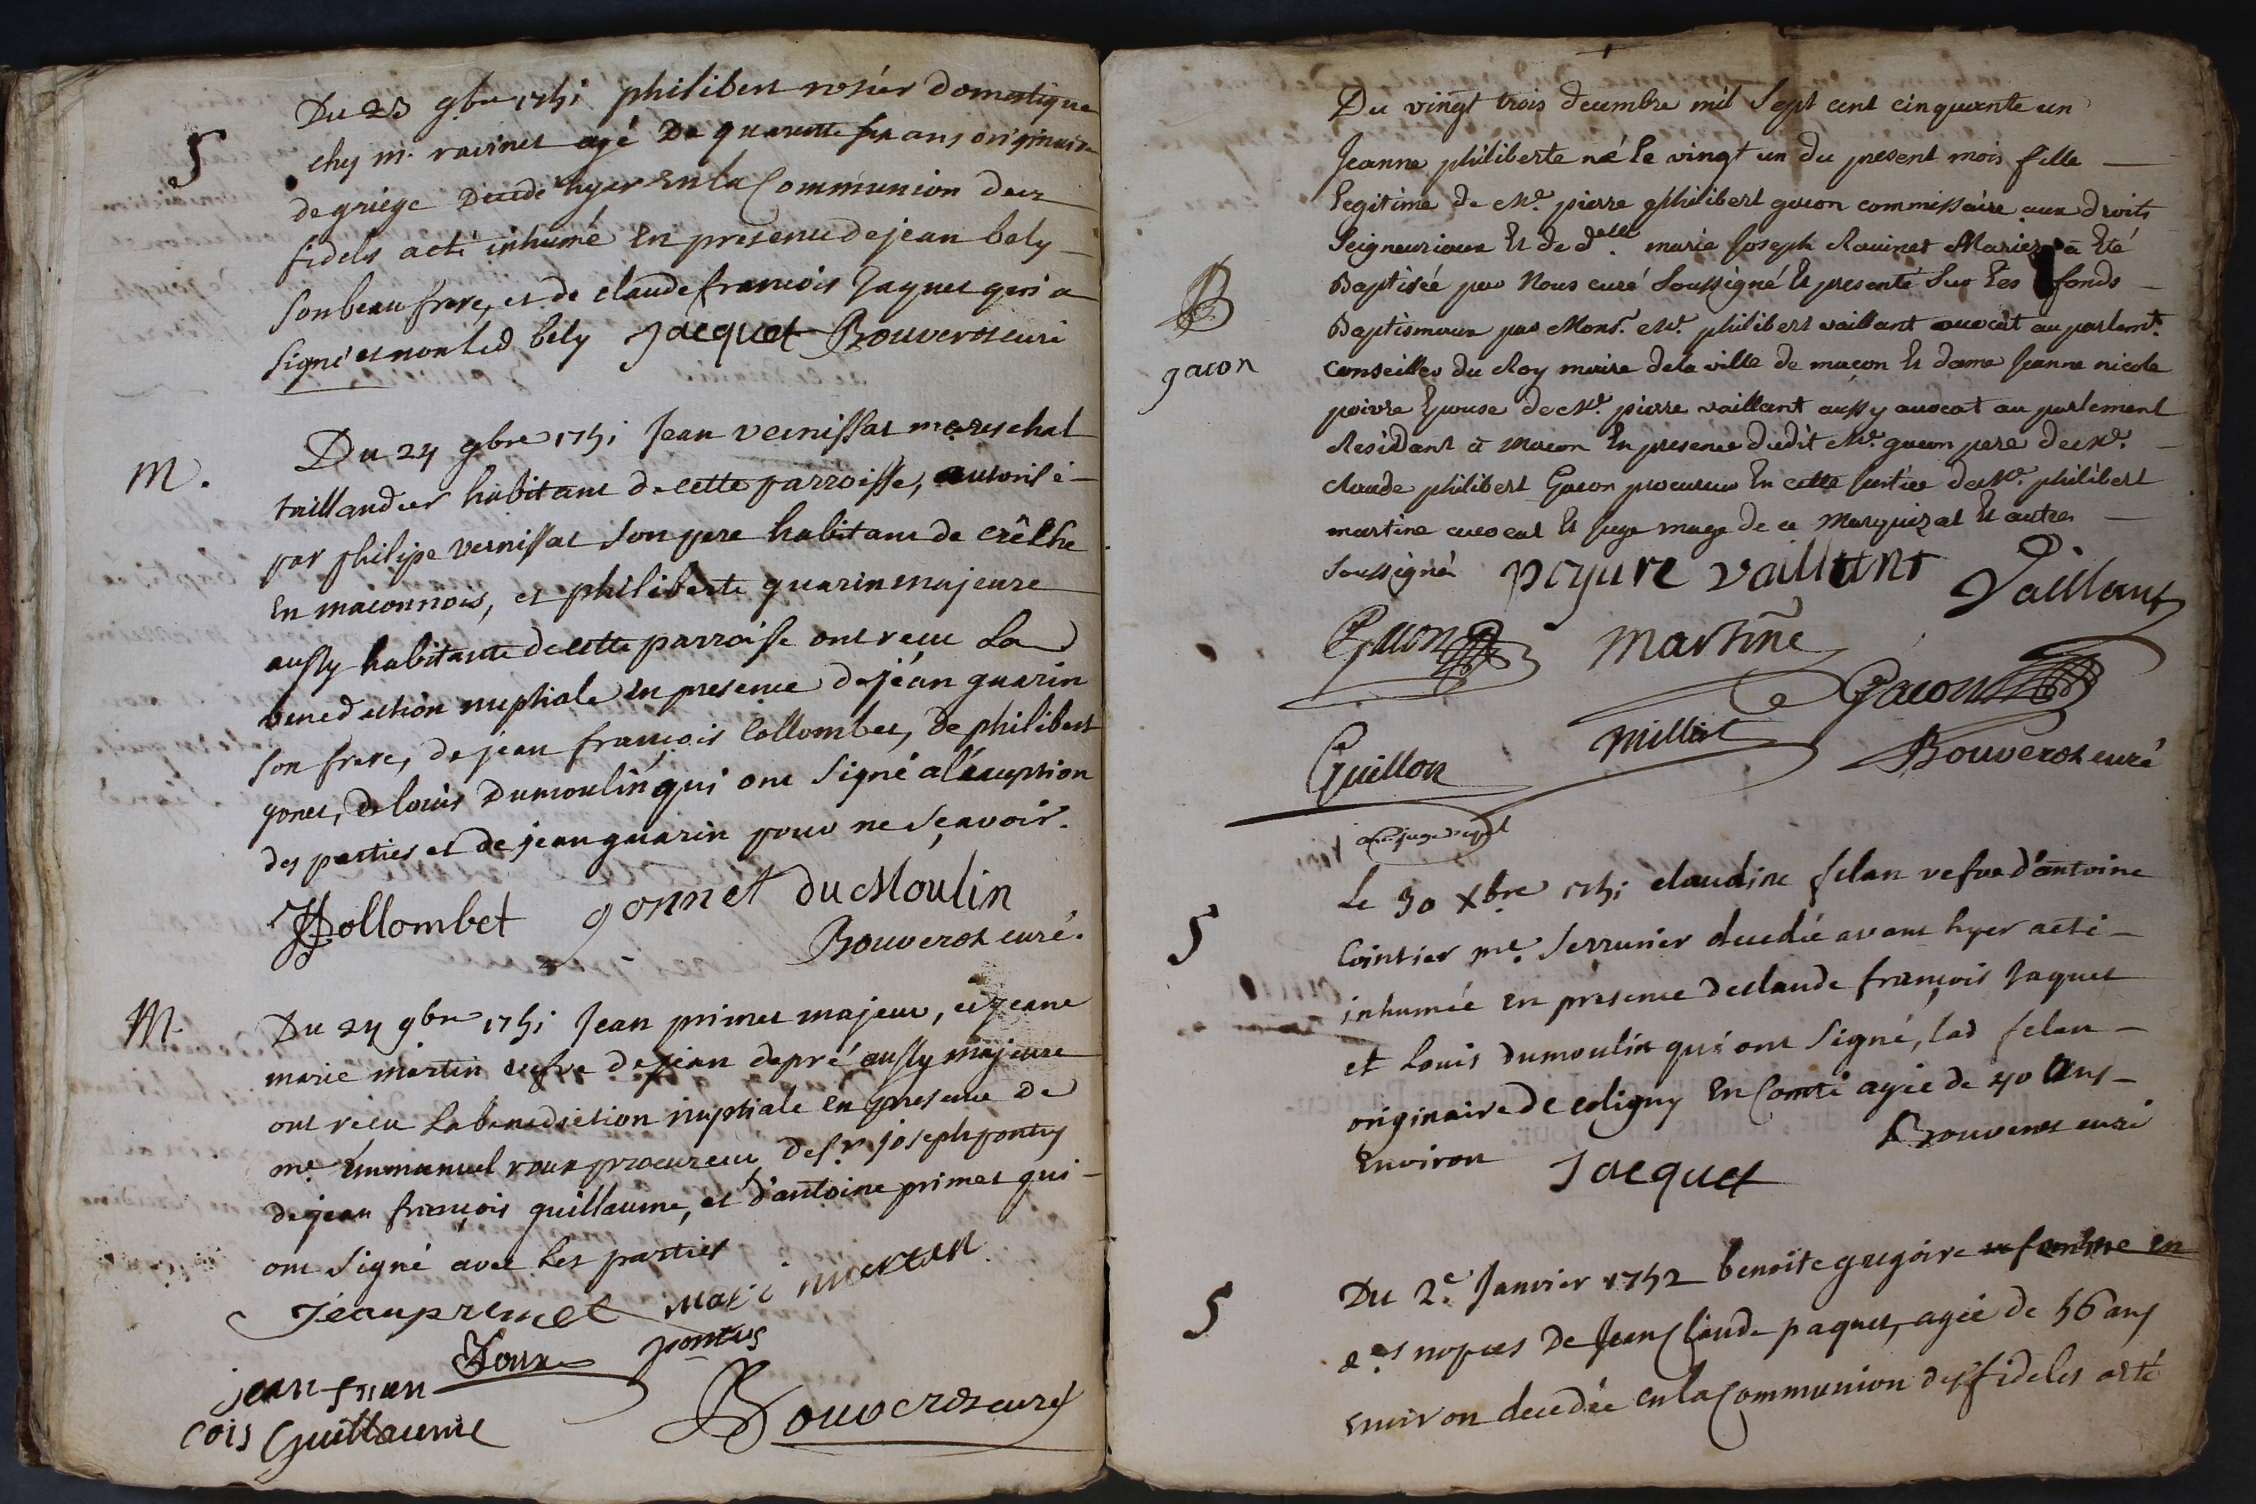 S
Du 23 9bre 1751 philibert rosier domestique
chez mr. ravinet agé de quarente six ans originaire
de griege decedé hyer en la Communion des
fideles a eté inhumé en presence de jean bely
son beau frere, et de claude françois Jaquet qui a
signé et non led bely Jacquet Bouverot curé
M.
Du 24 9bre 1751 Jean vernissat mareschal
taillandier habitant de cette parroisse, autorisé
par philipe vernissat son pere habitant de crêche
en maconnois, et philiberte guarin majeure
aussy habitante de cette parroisse ont recu la
benediction nuptiale en presence de jean guarin
son frere, de jean françois Collombet, de philibert
gonet, de louis Dumoulin qui ont signé a l'exception
des parties et de jean guarin pour ne sçavoir.
Jf Collombet gonnet du Moulin
Bouverot curé.
M.
Du 24 9bre 1751 Jean primet majeur, et jeane
marie martin vefve de jean depré aussy majeure
ont recu la benediction nuptiale en presence de
me. Emmanuel roux procureur, de sr. joseph pontus
de jean françois guillaume, et d'antoine primet qui
ont signé avec les parties
Jean primet marie martin
Roux pontus
jean fran
cois Guillaume Bouverot curé
Du vingt trois decembre mil Sept cent cinquante un
Jeanne philiberte né le vingt un du present mois fille
legitime de Me. pierre philibert gacon commissaire aux droits
Seigneuriaux et de delle. marie Joseph Ravinet Mariez a Eté
Baptisée par Nous curé Soussigné et presenté sur les fonds
Baptismaux par Monsr. Me. philibert vaillant avocat au parlemt.
Conseiller du Roy maire de la ville de macon et dame Jeanne nicole
poivre Epouse de Me. pierre vaillant aussy avocat au parlement
Residant à Macon En presence dudit Me. gacon pere de Me.
Claude philibert Gacon procureur En cette Justice de Me. philibert
martine avocat et juge mage de ce Marquizat et autres
Soussigné poyure vaillant Vaillant
B
gacon
Gacon Martine Gacon
Guillon Millet Bouverot curé
S
Le 30 Xbre 1751 claudine felan vefve d'antoine
Cointier me. Serrurier decedée avant hyer a eté
inhumée en presence de claude françois Jaquet
et Louis Dumoulin qui ont signé, lad felan
originaire de coligny en Comté agée de 40 ans
environ Jacquet Bouverot curé
S
Du 2e. Janvier 1752 benoite gregoire femme en
2es nopces de Jean Claude paquet, agée de 56 ans
environ decedée en la Communion des fideles a eté